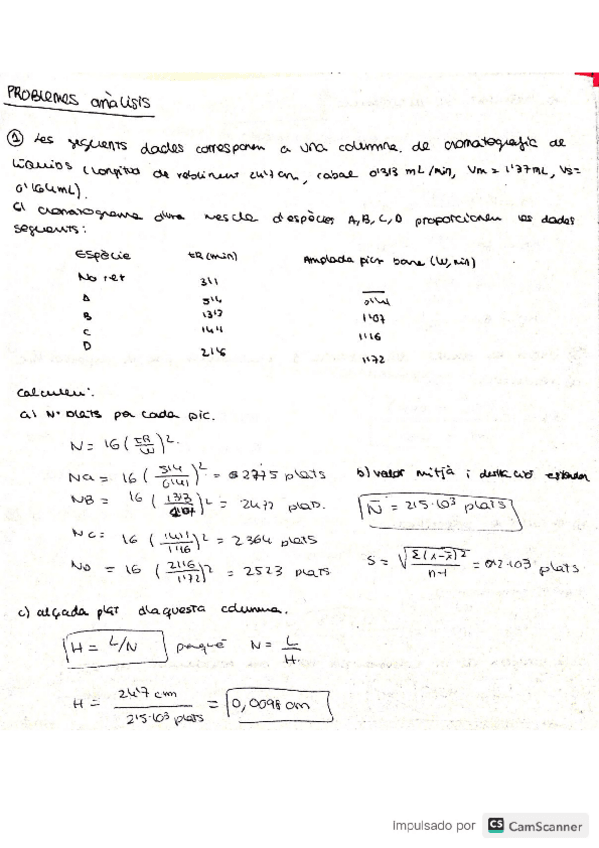 PROBLEMES anàlisis
① Les següents dades corresponen a una columna de cromatografia de
líquids (longitud de rebliment 24'7 cm, cabal 0'313 mL/min, Vm = 1'37 mL, Vs =
0'164 mL).
El cromatograma d'una mescla d'espècies A, B, C, D proporcionen les dades
següents:
Espècie tR (min) Amplada pic base (W, min)
No ret 3'1 —
A 5'4 0'41
B 13'3 1'07
C 14'4 1'16
D 21'6 1'72
Calculeu:
a) Nº plats per cada pic.
N = 16 (tR/W)².
Na = 16 (5'4/0'41)² = 2775 plats
NB = 16 (13'3/1'07)² = 2472 plats.
Nc = 16 (14'4/1'16)² = 2364 plats
ND = 16 (21'6/1'72)² = 2523 plats
b) valor mitjà i desviació estandar
N̄ = 2'5·10³ plats
S = √(Σ(x-x̄)²/n-1) = 0'2·10³ plats
c) alçada plat d'aquesta columna.
H = L/N perquè N = L/H
H = 24'7 cm / 2'5·10³ plats = 0,0098 cm
Impulsado por CS CamScanner